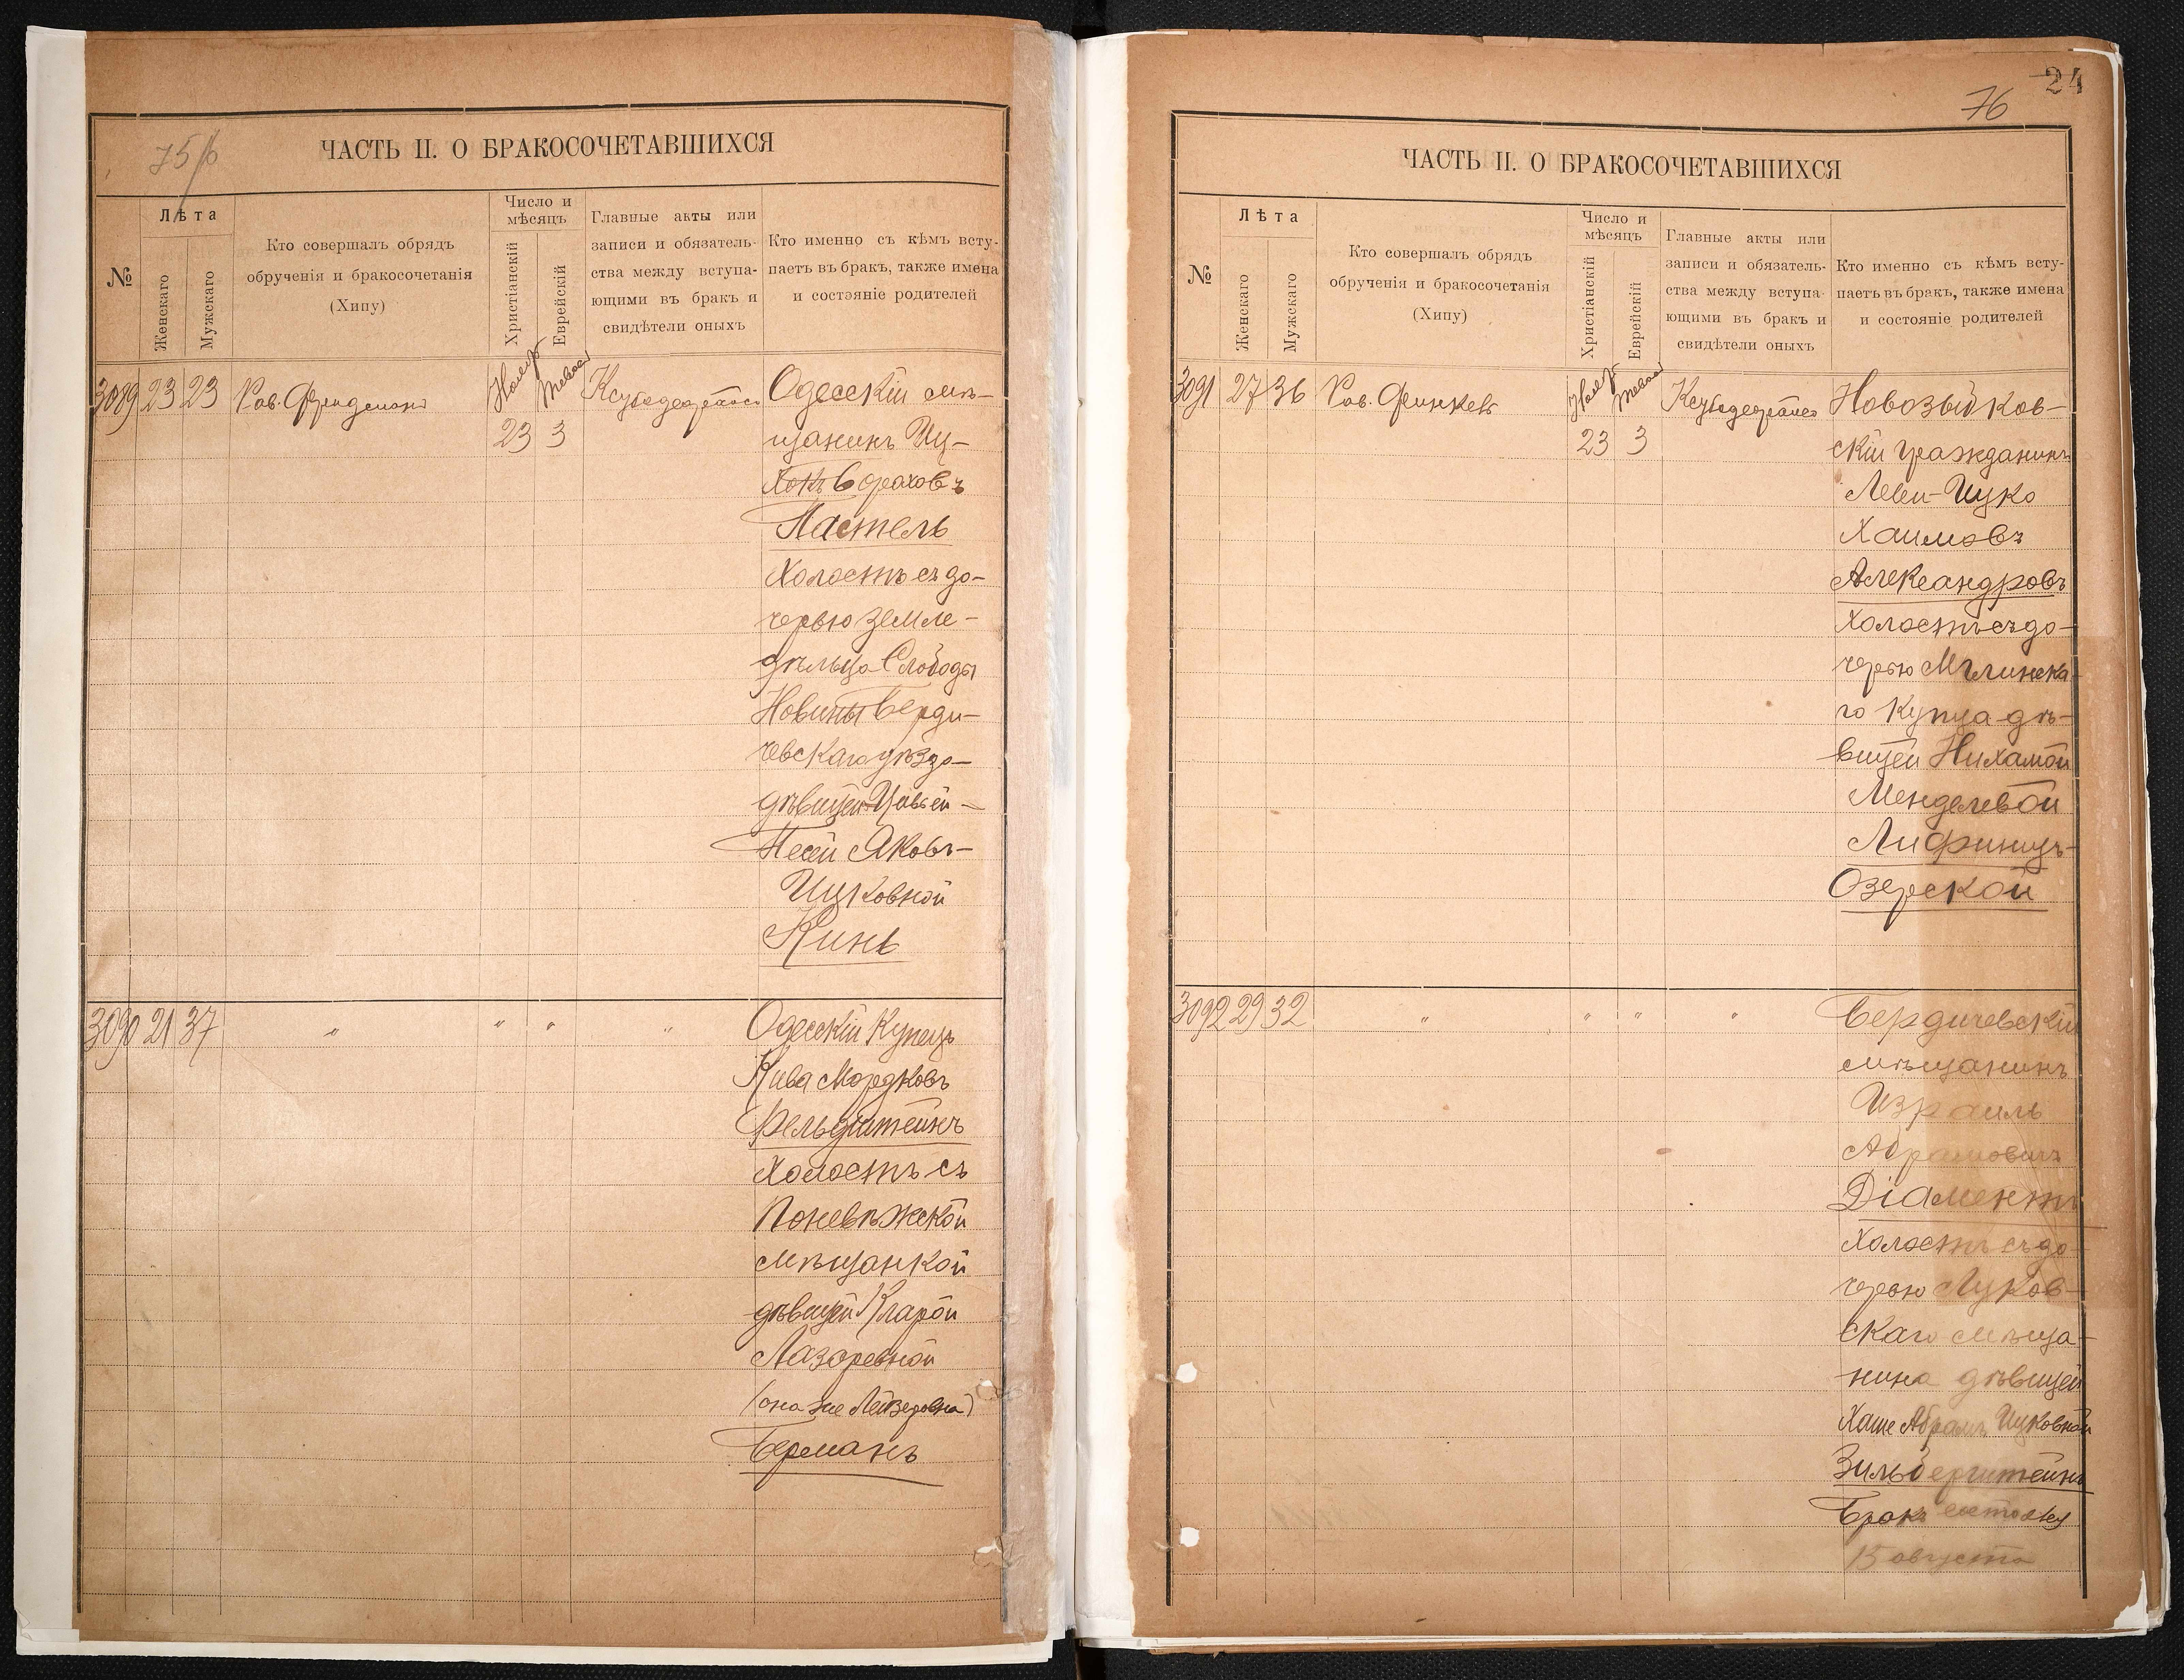 75/б
ЧАСТЬ II. О БРАКОСОЧЕТАВШИХСЯ
№
Лѣта
Женскаго
Мужскаго
Кто совершалъ обрядъ
обрученія и бракосочетанія
(Хипу)
Число и
мѣсяцъ
Христіанскій
Еврейскій
Главные акты или
записи и обязатель-
ства между вступа-
ющими въ бракъ и
свидѣтели оныхъ
Кто именно съ кѣмъ всту-
паетъ въ бракъ, также имена
и состояніе родителей
3089 23 23 Рав. Фридманъ
23 3
Одесскій мѣ-
щанинъ Иц-
Борахов ъ
Настель
Холостъ съ до-
черью земле-
дѣльца Слободы
Новины Берди-
чевскаго уѣзда
дѣвицей Цивьей-
Песей Яковъ-
Ицковной
Кинь
3090 21 37 " " " "
Одесскій Купецъ
Кива Мордковъ
Фельдштейнъ
Холостъ съ
Поневѣжской
мѣщанкой
дѣвицей Кларой
Лазаревной
(она же Лейзеровна)
Берманъ
24
76
ЧАСТЬ II. О БРАКОСОЧЕТАВШИХСЯ
№
Лѣта
Женскаго
Мужскаго
Кто совершалъ обрядъ
обрученія и бракосочетанія
(Хипу)
Число и
мѣсяцъ
Христіанскій
Еврейскій
Главные акты или
записи и обязатель-
ства между вступа-
ющими въ бракъ и
свидѣтели оныхъ
Кто именно съ кѣмъ всту-
паетъ въ бракъ, также имена
и состояніе родителей
3091 27 36 Рав. Финкель
23 3
Новозыбков-
скій гражданинъ
Леви-Ицко
Хаимовъ
Александровъ
Холостъ съ до-
черью Мглинска-
го Купца дѣ-
вицей Нихамой
Менделевой
Лифшицъ-
Озерской
3092 29 32 " " " "
Бердичевскій
мѣщанинъ
Израиль
Абрамовичъ
Діаментъ
Холостъ съ до-
черью Луков-
скаго мѣща-
нина дѣвицей
Хаше Абрамъ Ицковной
Зильберштейнъ
Бракъ состоялся
15 августа